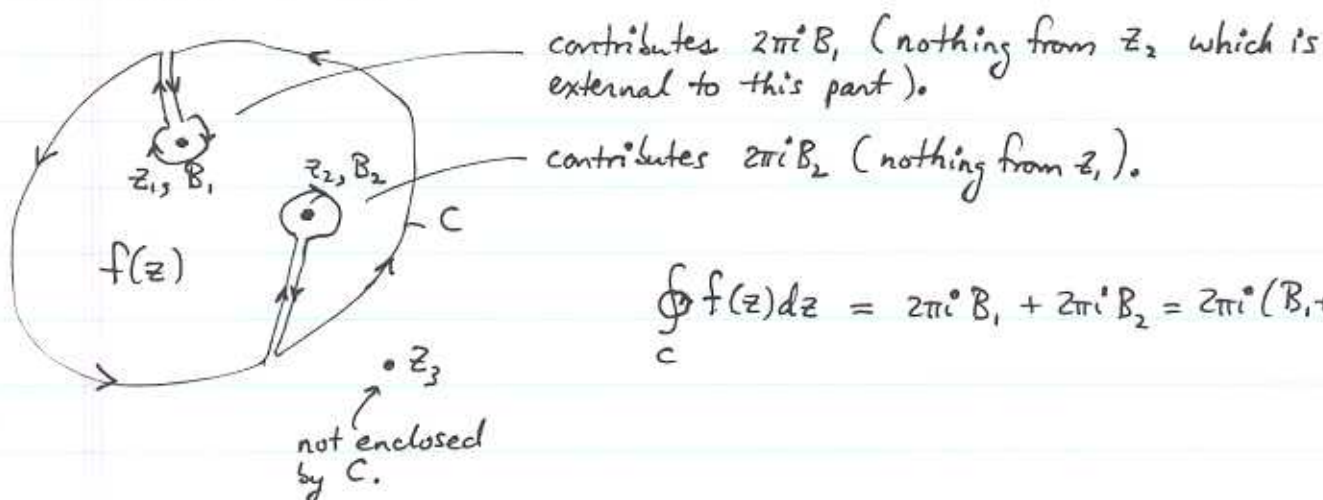 contributes 2πi B₁ (nothing from z₂ which is
external to this part).
contributes 2πi B₂ (nothing from z₁).
z₁, B₁
z₂, B₂
C
f(z)
∮ f(z)dz = 2πi B₁ + 2πi B₂ = 2πi (B₁+
C
z₃
not enclosed
by C.